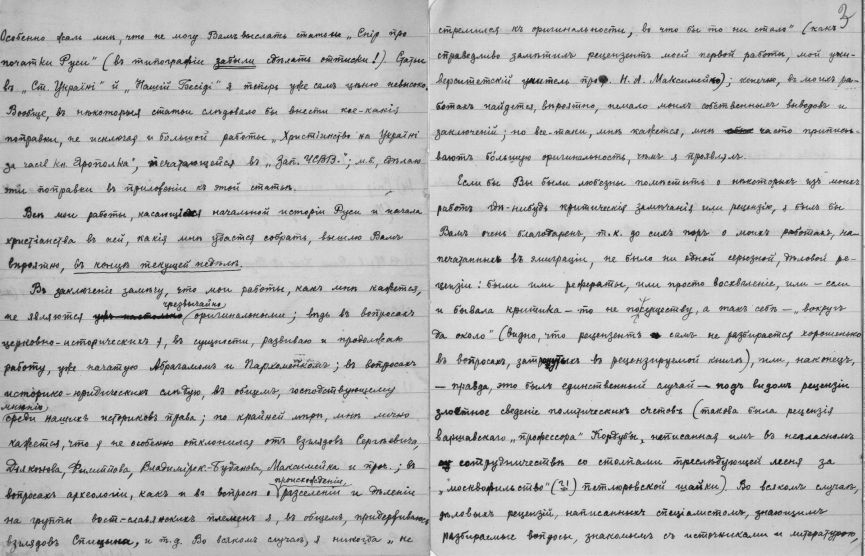 Особенно жаль мнѣ, что не могу Вамъ выслать статью „Спір про
початки Руси" (въ типографіи забыли сдѣлать оттиски!). Статьи
въ „Ст. Україні" й „Нашій Бесіді" я теперь уже самъ цѣню невысоко.
Вообще, въ нѣкоторыя статьи слѣдовало бы внести кое-какія
поправки, не исключая и большой работы „Християнство на Україні
за часів кн. Ярополка", печатающейся въ „Зап. ЧСВВ."; м.б., сдѣлаю
эти поправки въ приложеніи къ этой статьи.
Всѣ мои работы, касающіяся начальной исторіи Руси и начала
христіанства въ ней, какія мнѣ удастся собрать, вышлю Вамъ
вѣроятно, въ концѣ текущей недѣли.
Въ заключеніе замѣчу, что мои работы, какъ мнѣ кажется,
не являются чрезвычайно оригинальными; вѣдь въ вопросахъ
церковно-историческихъ я, въ сущности, развиваю и продолжаю
работу, уже начатую Абрагамомъ и Пархоменкомъ; въ вопросахъ
историко-юридическихъ слѣдую, въ общемъ, господствующему
мнѣнію среди нашихъ историковъ права; по крайней мѣрѣ, мнѣ лично
кажется, что я не особенно отклонился отъ взглядовъ Сергѣевича,
Дьяконова, Филиппова, Владимірск-Буданова, Максимейка и проч.; въ
вопросахъ археологіи, какъ и въ вопросѣ происхожденіи, разселеніи и дѣленіи
на группы вост-славянскихъ племенъ я, въ общемъ, придерживаюсь
взглядовъ Спицына, и т.д. Во всякомъ случаѣ, я никогда „не
3
стремился къ оригинальности, во что бы то ни стало" (какъ
справедливо замѣтилъ рецензентъ моей первой работы, мой уни-
верситетскій учитель проф. Н. А. Максимейко); конечно, въ моихъ ра-
ботахъ найдется, вѣроятно, немало моихъ собственныхъ выводовъ и
заключеній; но все-таки, мнѣ кажется, мнѣ часто приписы-
ваютъ бо́льшую оригинальность, чѣмъ я проявлялъ.
Если бы Вы были любезны помѣстить о нѣкоторыхъ изъ моихъ
работъ гдѣ-нибудь критическія замѣчанія или рецензію, я былъ бы
Вамъ очень благодаренъ, т.к. до сихъ поръ о моихъ работахъ, на-
печатанныхъ въ эмиграціи, не было ни одной серіозной, дѣловой ре-
цензіи: были или рефераты, или просто восхваленіе, или – если
и бывала критика – то не по существу, а такъ себѣ – „вокругъ
да около" (видно, что рецензентъ самъ не разбирается хорошенько
въ вопросахъ, затронутыхъ въ рецензируемой книгѣ), или, наконецъ,
– правда, это былъ единственный случай – подъ видомъ рецензіи
злостное сведеніе политическихъ счетовъ (такова была рецензія
варшавского „профессора" Кордубы, написанная имъ въ негласномъ
сотрудничествѣ со столпами преслѣдующей меня за
„москвофильство" (?!) петлюровской шайки). Во всякомъ случаѣ,
дѣловыхъ рецензій, написанныхъ спеціалистомъ, знающимъ
разбираемые вопросы, знакомымъ съ источниками и литературою,